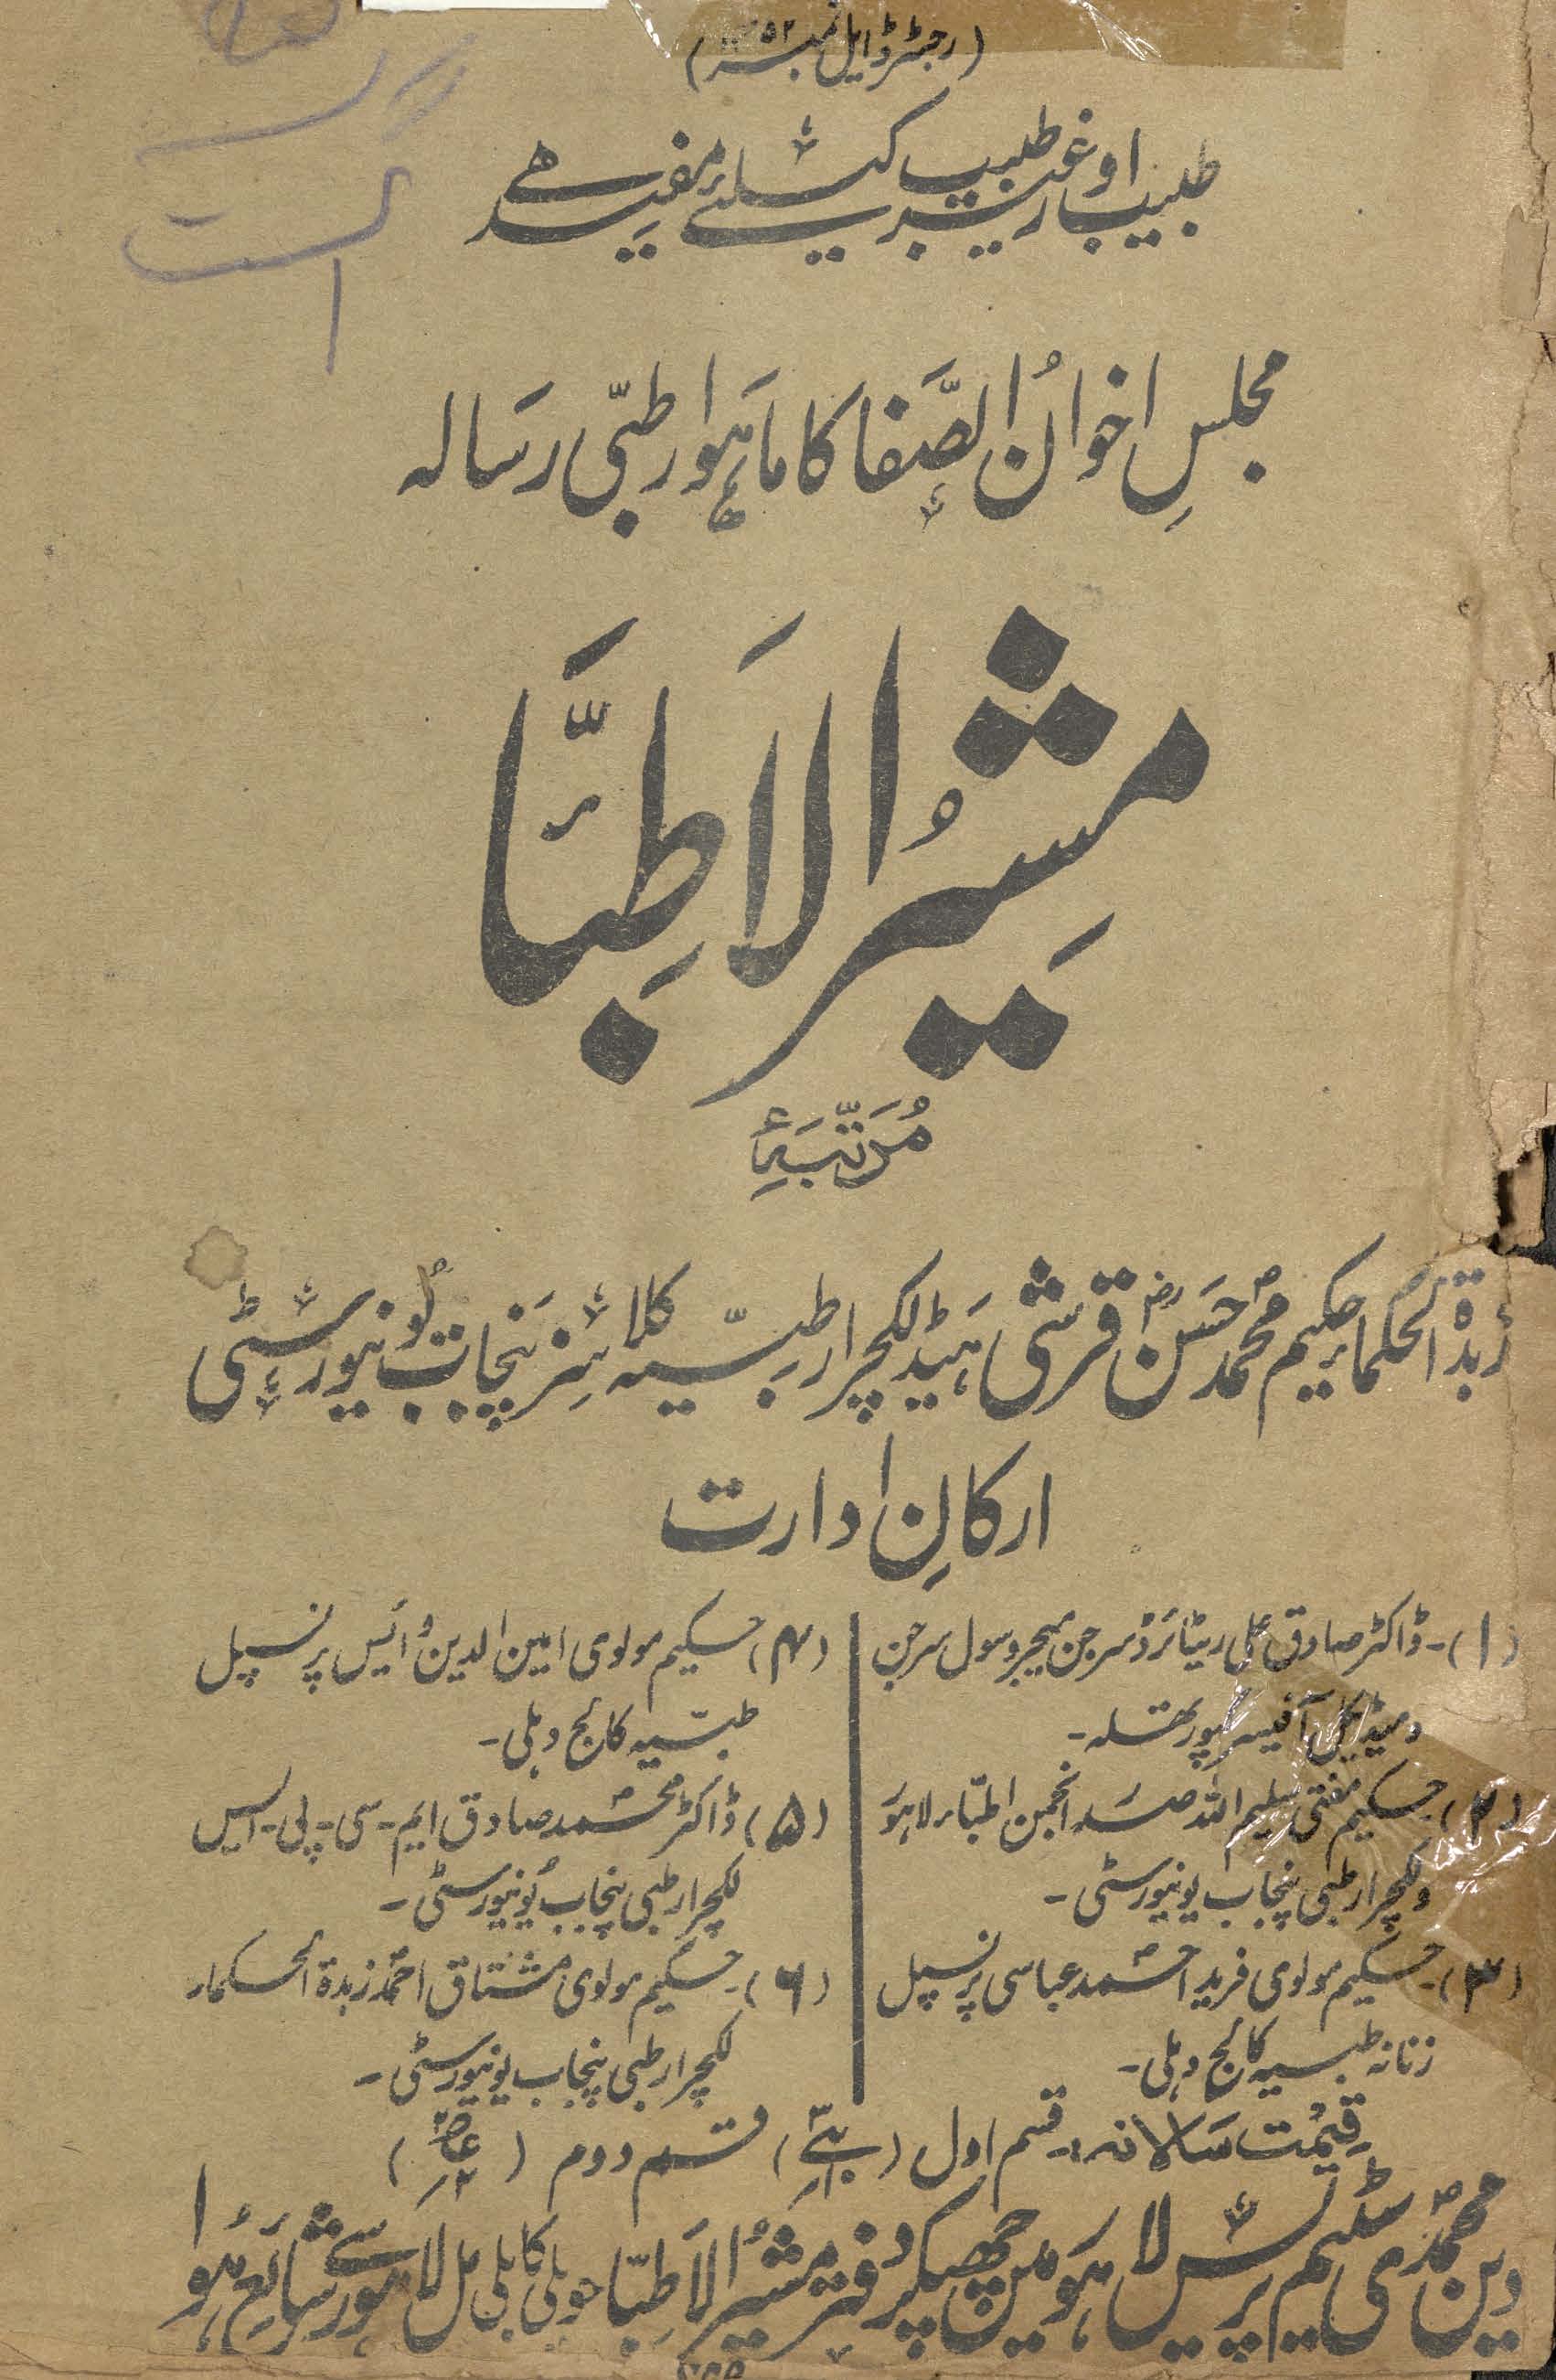 (رجسٹرڈ ایل نمبر
اگست
طبیب اور غیر طبیب کیلئے مفید ہے
مجلسِ اخوانُ الصَّفا کا ماہوار طبّی رسالہ
مشیرُ الاَطِبَّاء
مُرَتَّبَۂِ
زبدۃ الحکماء حکیم محمد حسن قرشی ہیڈ لکچرار طبّیہ کلاسز پنجاب یُونیورسٹی
ارکانِ ادارت
(۱)۔ ڈاکٹر صادق علی ریٹائرڈ سرجن میجر و سول سرجن
و میڈیکل آفیسر کپورتھلہ۔
(۲) حکیم مفتی سلیم اللہ صدر انجمن اطباء لاہور
و لکچرار طبی پنجاب یونیورسٹی۔
(۳)۔ حکیم مولوی فرید احمد عباسی پرنسپل
زنانہ طبیہ کالج دہلی۔
(۴) حکیم مولوی امین الدین وائس پرنسپل
طبّیہ کالج دہلی۔
(۵) ڈاکٹر محمد صادق ایم۔سی۔پی۔ایس
لکچرار طبی پنجاب یُونیورسٹی۔
(۶)۔ حکیم مولوی مشتاق احمد زبدۃ الحکماء
لکچرار طبی پنجاب یونیورسٹی۔
قیمت سالانہ:۔ قسم اول ( ) قسم دوم ( )
دین محمدی سٹیم پریس لاہور میں چھپکر دفتر مشیرُ الاَطِبّا حویلی کابلی مل لاہور سے شائع ہوا